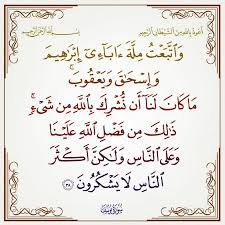 أعوذ بالله من الشيطان الرجيم
وَاتَّبَعْتُ مِلَّةَ ءَابَآءِىٓ إِبْرَٰهِيمَ
وَإِسْحَٰقَ وَيَعْقُوبَ ۚ
مَا كَانَ لَنَآ أَن نُّشْرِكَ بِٱللَّهِ مِن شَىْءٍ ۚ
ذَٰلِكَ مِن فَضْلِ ٱللَّهِ عَلَيْنَا
وَعَلَى ٱلنَّاسِ وَلَٰكِنَّ أَكْثَرَ
ٱلنَّاسِ لَا يَشْكُرُونَ ٣٨
سورة يوسف